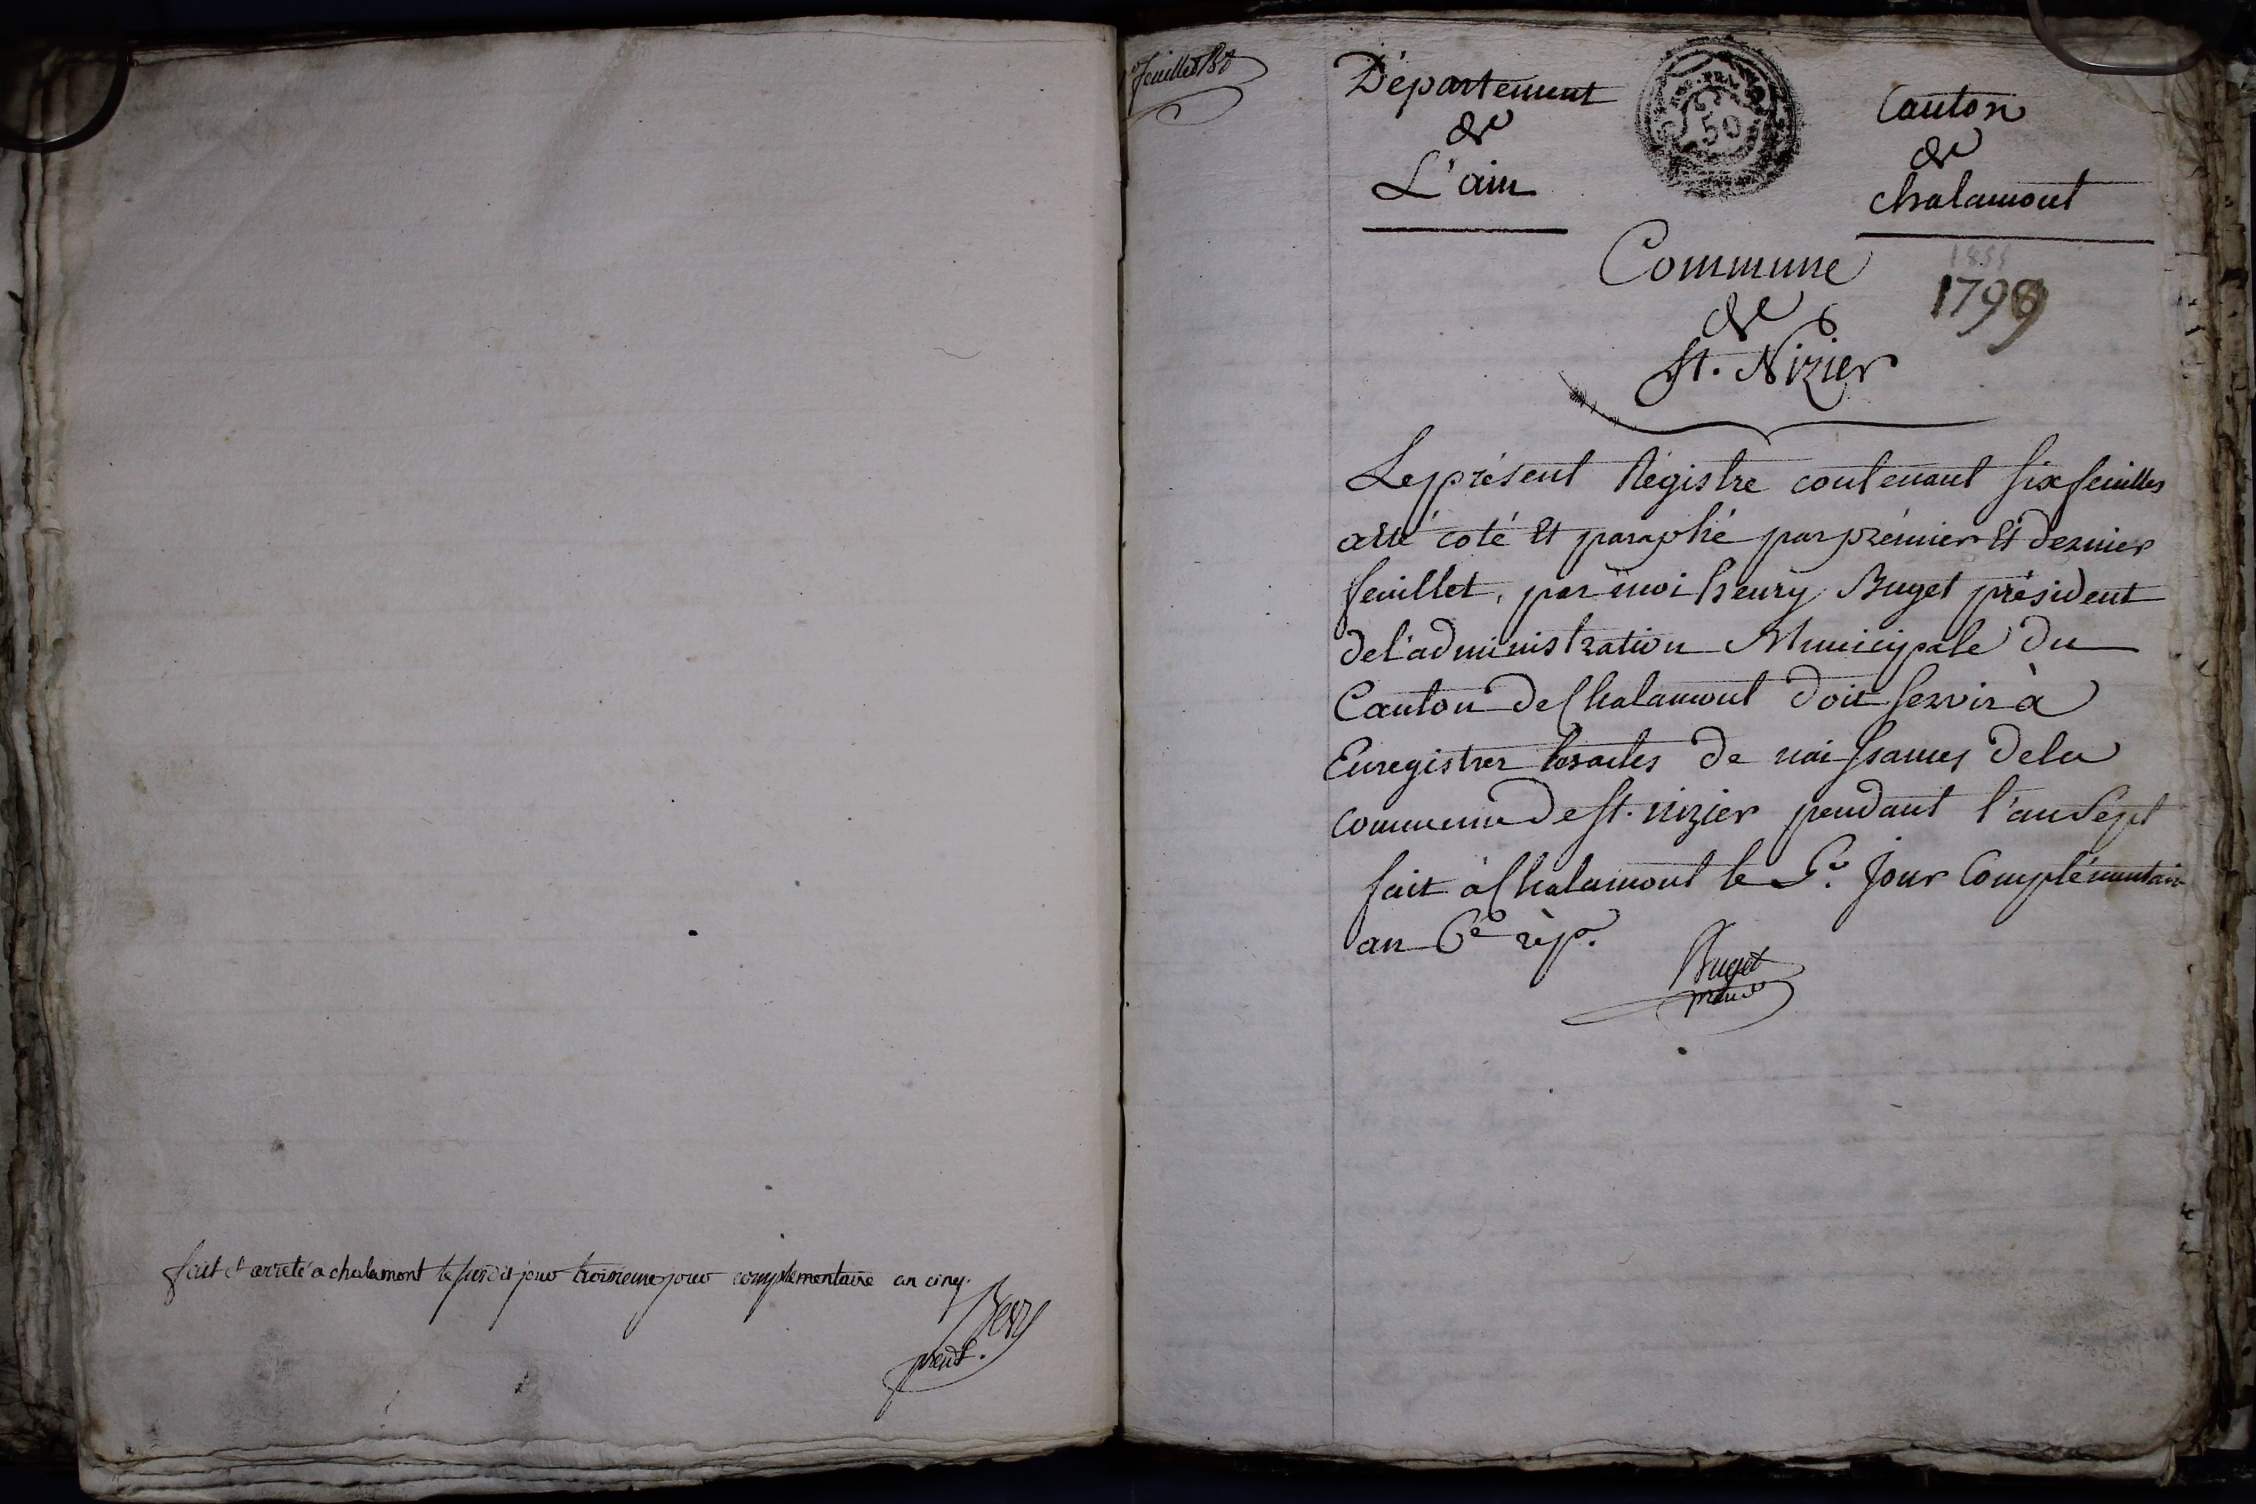 fait et arreté a chalamont le susdit jour troisieme jour complementaire an cinq.
presdt.
1er feuillet
Département
de
L'ain
RÉP. FRA
50
Canton
de
chalamont
Commune
de
St. Nizier
1799
Le présent Régistre contenant six feuilles
a été coté et paraphé par prémier et dernier
feuillet, par moi henry Buget président
de l'administration Municipale du
Canton de Chalamont doit servir à
Enregistrer les actes de naissances de la
commune de St. nizier pendant l'an sept
fait à Chalamont le 5e. Jour Complémentaire
an 6e rép.
Buget